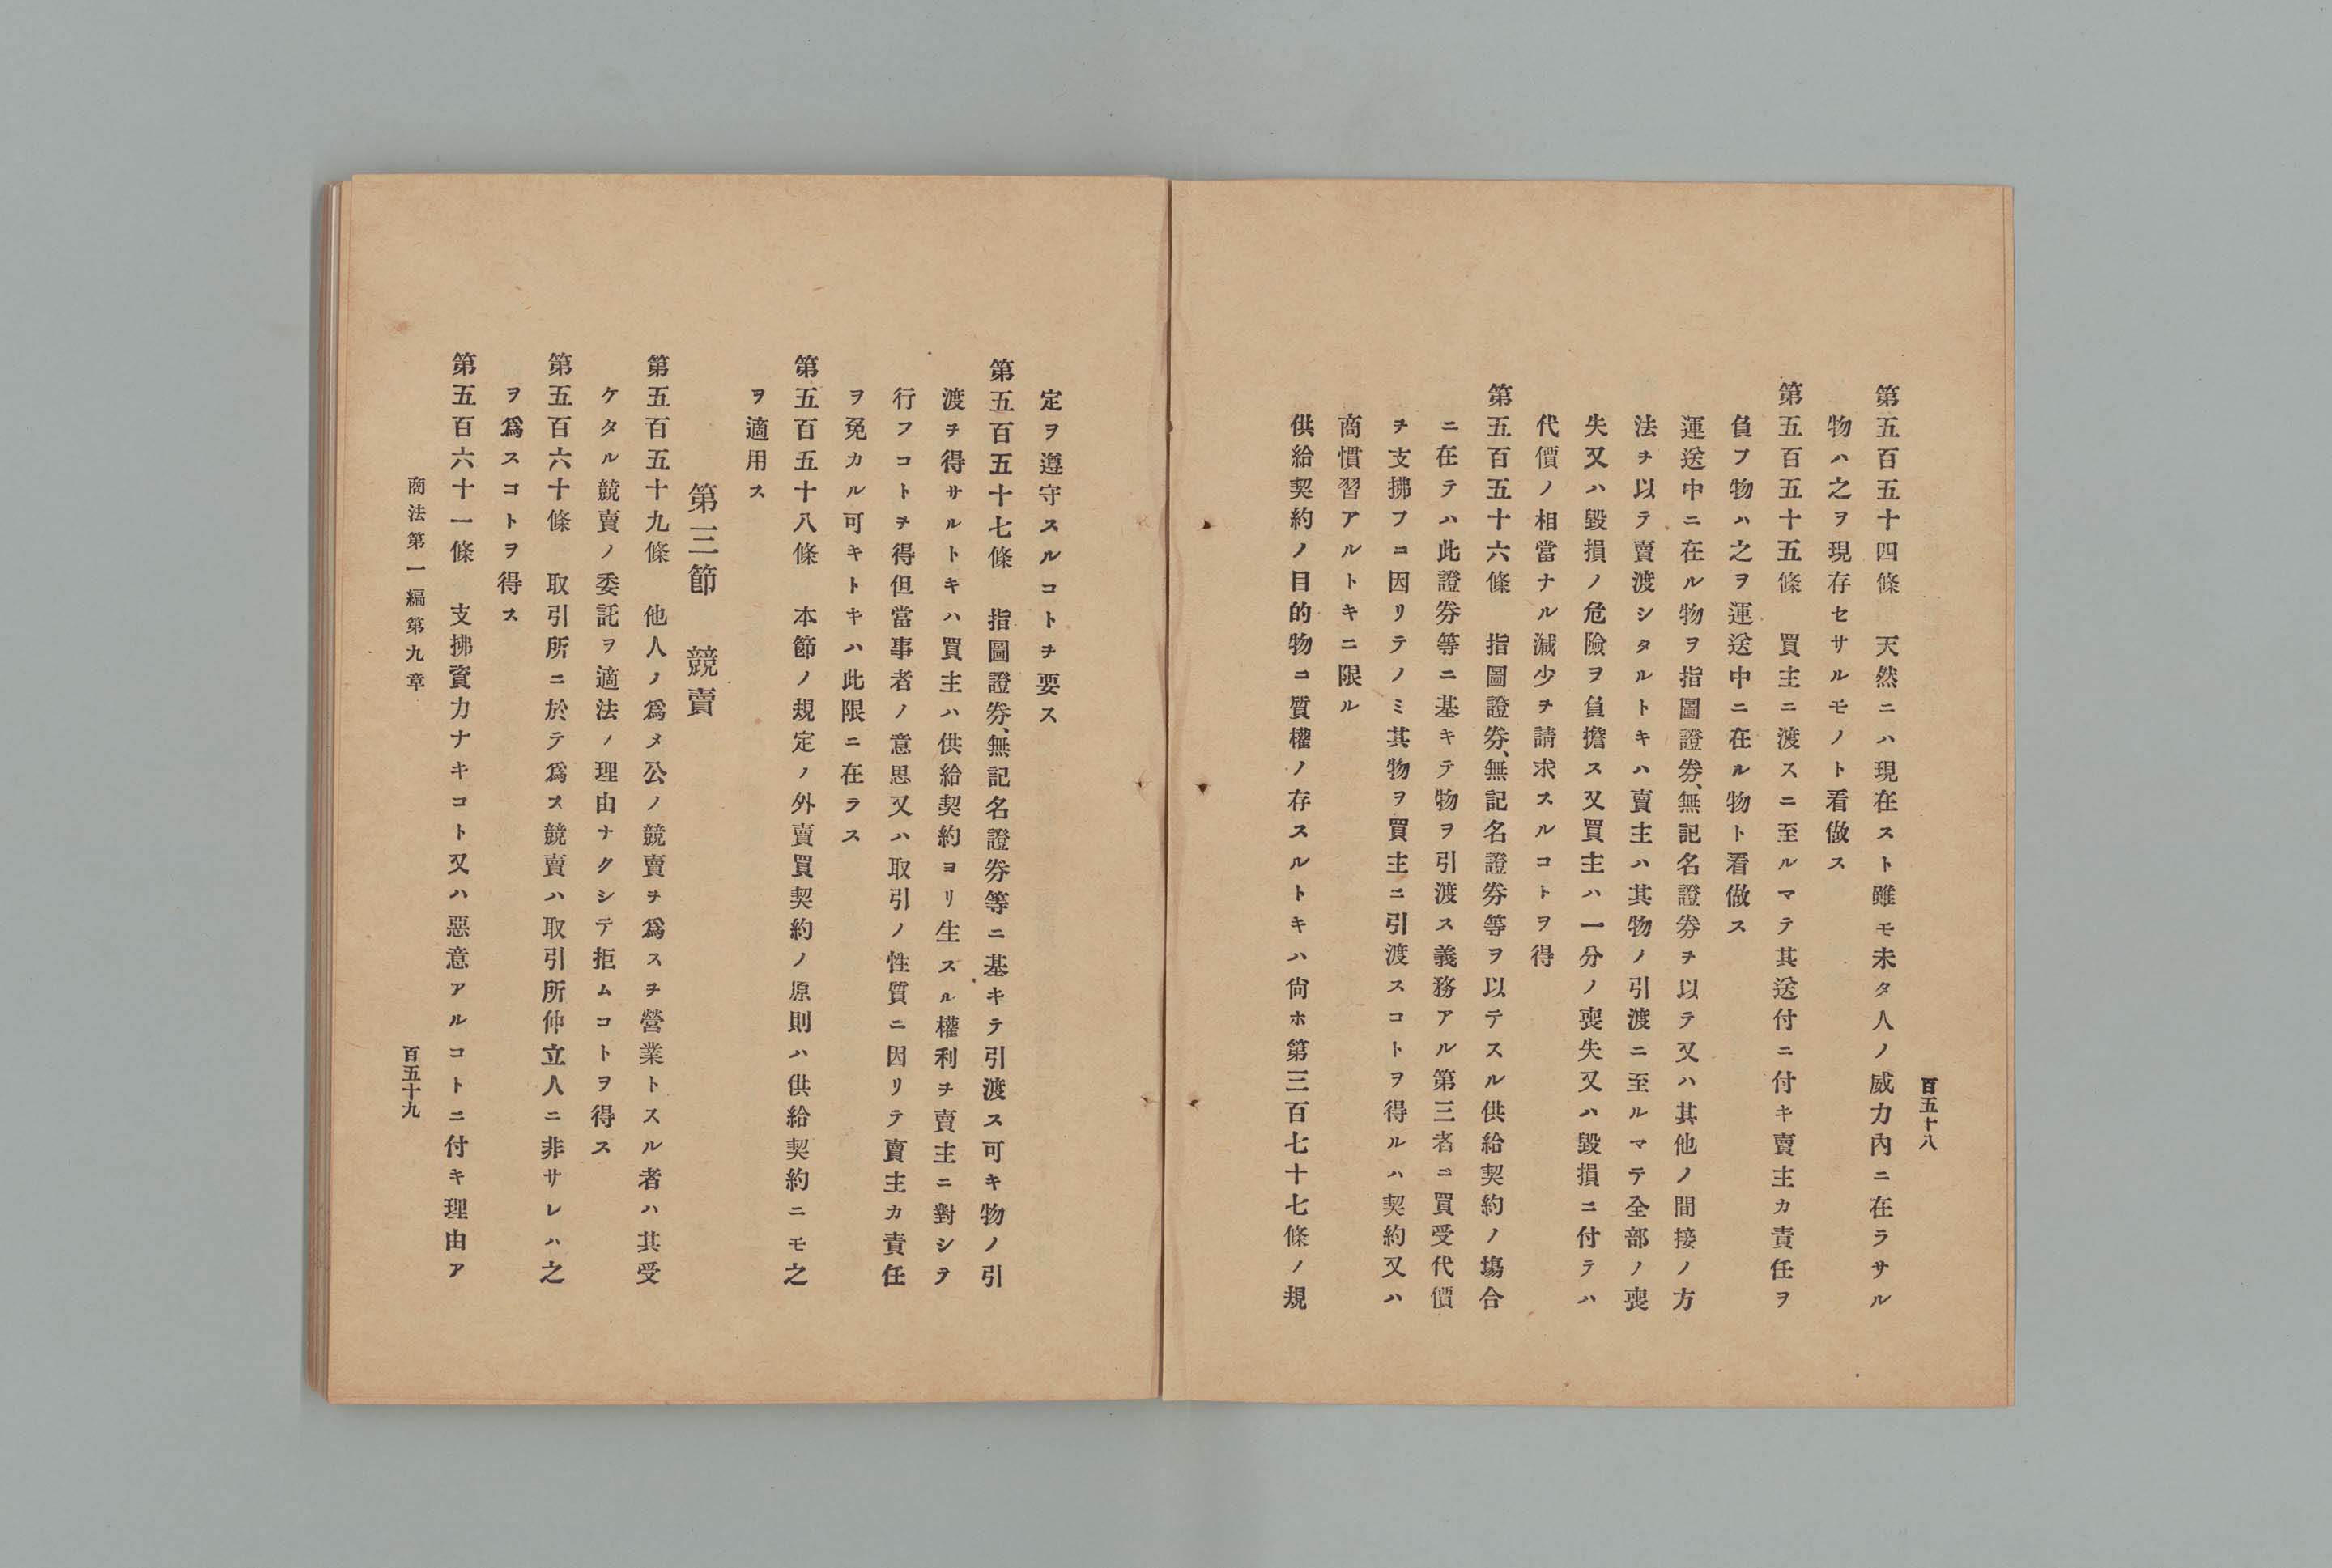 百五十八
第五百五十四條　天然ニハ現在スト雖モ未タ人ノ威力內ニ在ラサル
物ハ之ヲ現存セサルモノト看做ス
第五百五十五條　買主ニ渡スニ至ルマテ其送付ニ付キ賣主カ責任ヲ
負フ物ハ之ヲ運送中ニ在ル物ト看做ス
運送中ニ在ル物ヲ指圖證券、無記名證券ヲ以テ又ハ其他ノ間接ノ方
法ヲ以テ賣渡シタルトキハ賣主ハ其物ノ引渡ニ至ルマテ全部ノ喪
失又ハ毀損ノ危險ヲ負擔ス又買主ハ一分ノ喪失又ハ毀損ニ付テハ
代價ノ相當ナル減少ヲ請求スルコトヲ得
第五百五十六條　指圖證券、無記名證券等ヲ以テスル供給契約ノ塲合
ニ在テハ此證券等ニ基キテ物ヲ引渡ス義務アル第三者ニ買受代價
ヲ支拂フニ因リテノミ其物ヲ買主ニ引渡スコトヲ得ルハ契約又ハ
商慣習アルトキニ限ル
供給契約ノ目的物ニ質權ノ存スルトキハ尙ホ第三百七十七條ノ規
定ヲ遵守スルコトヲ要ス
第五百五十七條　指圖證券、無記名證券等ニ基キテ引渡ス可キ物ノ引
渡ヲ得サルトキハ買主ハ供給契約ヨリ生スル權利ヲ賣主ニ對シテ
行フコトヲ得但當事者ノ意思又ハ取引ノ性質ニ因リテ賣主カ責任
ヲ免カル可キトキハ此限ニ在ラス
第五百五十八條　本節ノ規定ノ外賣買契約ノ原則ハ供給契約ニモ之
ヲ適用ス
第三節　競賣
第五百五十九條　他人ノ爲メ公ノ競賣ヲ爲スヲ營業トスル者ハ其受
ケタル競賣ノ委託ヲ適法ノ理由ナクシテ拒ムコトヲ得ス
第五百六十條　取引所ニ於テ爲ス競賣ハ取引所仲立人ニ非サレハ之
ヲ爲スコトヲ得ス
第五百六十一條　支拂資力ナキコト又ハ惡意アルコトニ付キ理由ア
商法第一編第九章
百五十九